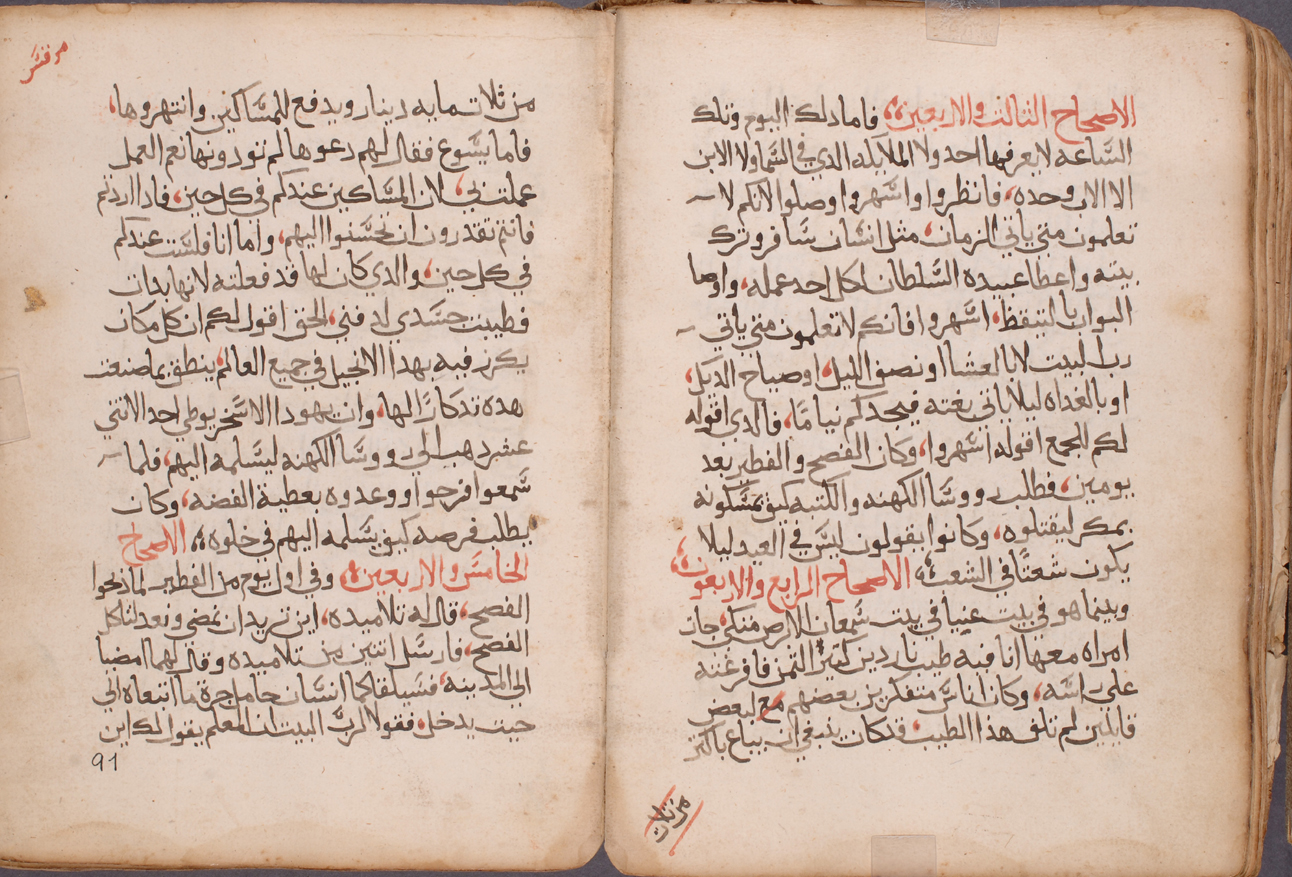 الاصحاح الثالث والاربعين؛ فاما دلك اليوم وتلك
الساعه لا يعرفها احد ولا الملايكه الدي في السما ولا الابن
الا الاب وحده، فانظروا واسهروا وصلوا لانكم لا
تعلمون متي ياتي الزمان، مثل انسان سافر وترك
بيته واعطا عبيده السلطان لكل احد عمله، واوصا
البواب بالتيقظ، اسهروا فانكم لا تعلمون متي ياتي
رب البيت لا بالعشا او نصف الليل، او صياح الديك،
او بالغداه ليلا ياتي بغته فيجدكم نيامًا، فالدي اقوله
لكم للجمع اقوله اسهروا، وكان الفصح والفطير بعد
يومين، فطلب رووسا الكهنه والكتبه كيف يمسكونه
بمكر ليقتلوه، وكانوا يقولون ليس في العيد ليلا
يكون شعثًا في الشعب؛ الاصحاح الرابع والاربعون،
وبينما هو في بيت عنيا في بيت سمعان الابرص متكي، جات
امراه معها انا فيه طيب ناردين كثير الثمن فافرغته
على راسه، وكان اناس متفكرين بعضهم مع لبعض
قايلين لم تلف هذا الطيب، قد كان ينبغي ان يباع باكثر
من تلات
مرقس
من ثلات مايه دينار ويدفع للمساكين وانتهروها،
فاما يسوع فقال لهم دعوها لم تودونها نعم العمل
عملت بي، لان المساكين عندكم في كل حين، فادا اردتم
فانتم تقدرون ان تحسنوا اليهم، واما انا فلست عندكم
في كل حين، والدي كان لها قد فعلته لانها بدات
فطيبت جسدي لدفني، الحق اقول لكم ان كل مكان
يكرز فيه بهدا الانجيل في جميع العالم، ينطق بما صنعت
هده تدكارًا لها، وان يهودا الاسخريوطي احد الاثني
عشر دهب الي رووسا الكهنه ليسلمه اليهم، فلما
سمعوا فرحوا ووعدوه بعطية الفضه، وكان
يطلب فرصه كيف يسلمه اليهم في خلوه؛ الاصحاح
الخامس والاربعين؛ وفي اول يوم من الفطير لما ذبحوا
الفصح، قال له تلاميده، اين تريد ان نمضي ونعد لتاكل
الفصح، فارسل اثنين من تلاميده وقال لهما امضيا
الي المدينه، فسيلقاكما انسان حامل جرة ما اتبعاه الي
حيت يدخل، فقولا لرب البيت ان المعلم يقول لك اين
91